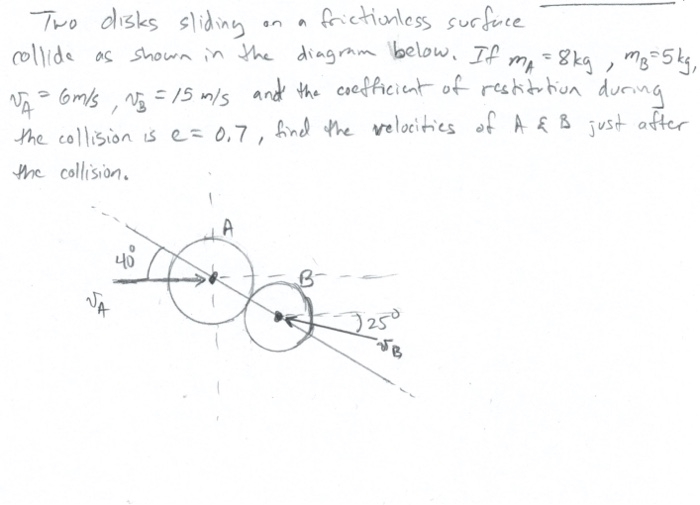 Two disks sliding on a frictionless surface
collide as shown in the diagram below. If m_A = 8kg, m_B = 5kg,
v_A = 6m/s, v_B = 15 m/s and the coefficient of restitution during
the collision is e = 0.7, find the velocities of A & B just after
the collision.
A
40°
B
v_A
25°
v_B